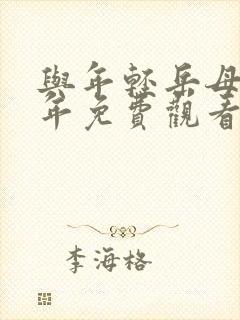 與年輕岳母
年免費觀看
李海格